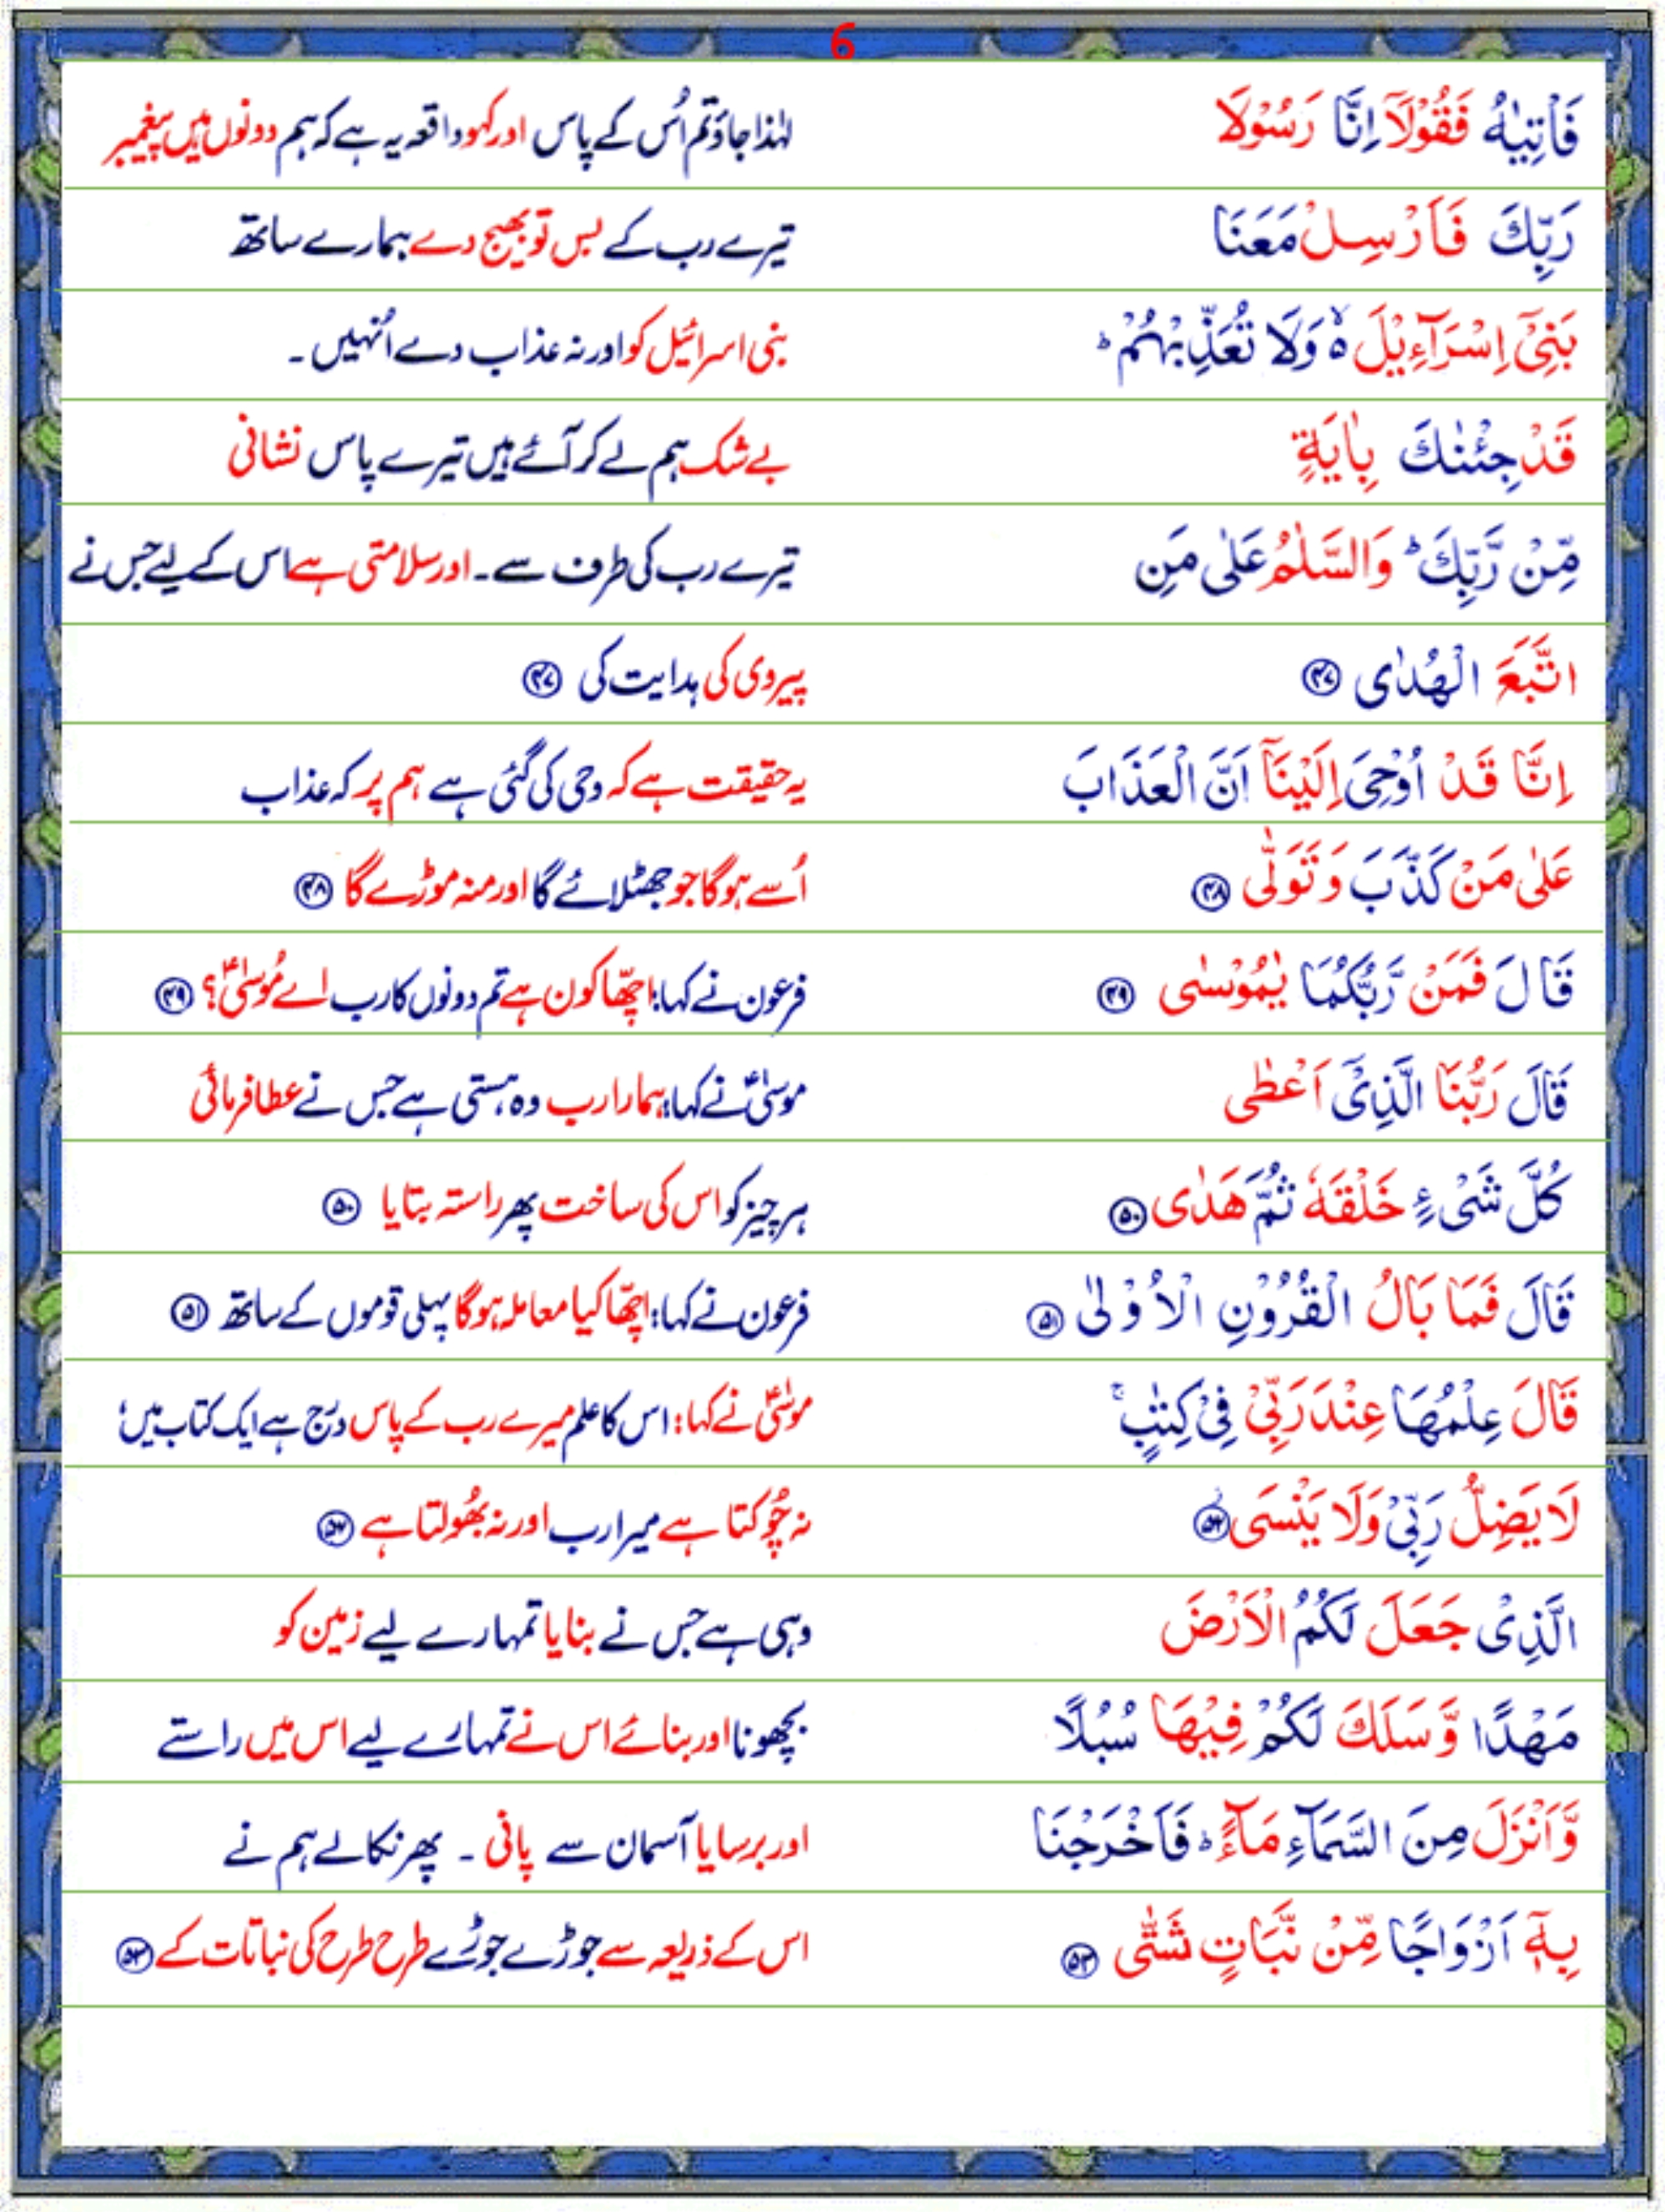 6
فَاْتِيٰهُ فَقُوْلَاۤ اِنَّا رَسُوْلَا لہٰذا جاؤ تم اُس کے پاس اور کہو واقعہ یہ ہے کہ ہم دونوں ہیں پیغمبر
رَبِّكَ فَاَرْسِلْ مَعَنَا تیرے رب کے بس تو بھیج دے ہمارے ساتھ
بَنِيْۤ اِسْرَآءِيْلَ ۙ۬ وَلَا تُعَذِّبْهُمْ ؕ بنی اسرائیل کو اور نہ عذاب دے اُنہیں ۔
قَدْ جِئْنٰكَ بِاٰيَةٍ بے شک ہم لے کر آئے ہیں تیرے پاس نشانی
مِّنْ رَّبِّكَ ؕ وَالسَّلٰمُ عَلٰى مَنِ تیرے رب کی طرف سے ۔ اور سلامتی ہے اس کے لیے جس نے
اتَّبَعَ الْهُدٰى ۴۷ پیروی کی ہدایت کی ۴۷
اِنَّا قَدْ اُوْحِيَ اِلَيْنَاۤ اَنَّ الْعَذَابَ یہ حقیقت ہے کہ وحی کی گئی ہے ہم پر کہ عذاب
عَلٰى مَنْ كَذَّبَ وَتَوَلّٰى ۴۸ اُسے ہوگا جو جھٹلائے گا اور منہ موڑے گا ۴۸
قَالَ فَمَنْ رَّبُّكُمَا يٰمُوْسٰى ۴۹ فرعون نے کہا: اچھّا کون ہے تم دونوں کا رب اے مُوسٰیؑ؟ ۴۹
قَالَ رَبُّنَا الَّذِيْۤ اَعْطٰى موسٰیؑ نے کہا: ہمارا رب وہ ہستی ہے جس نے عطا فرمائی
كُلَّ شَيْءٍ خَلْقَهٗ ثُمَّ هَدٰى ۵۰ ہر چیز کو اس کی ساخت پھر راستہ بتایا ۵۰
قَالَ فَمَا بَالُ الْقُرُوْنِ الْاُوْلٰى ۵۱ فرعون نے کہا: اچھّا کیا معاملہ ہوگا پہلی قوموں کے ساتھ ۵۱
قَالَ عِلْمُهَا عِنْدَ رَبِّيْ فِيْ كِتٰبٍ ۚ موسٰیؑ نے کہا: اس کا علم میرے رب کے پاس درج ہے ایک کتاب میں؛
لَا يَضِلُّ رَبِّيْ وَلَا يَنْسَى ۵۲ نہ چُوکتا ہے میرا رب اور نہ بھُولتا ہے ۵۲
الَّذِيْ جَعَلَ لَكُمُ الْاَرْضَ وہی ہے جس نے بنایا تمہارے لیے زمین کو
مَهْدًا وَّسَلَكَ لَكُمْ فِيْهَا سُبُلًا بچھونا اور بنائے اس نے تمہارے لیے اس میں راستے
وَّاَنْزَلَ مِنَ السَّمَآءِ مَآءً ؕ فَاَخْرَجْنَا اور برسایا آسمان سے پانی ۔ پھر نکالے ہم نے
بِهٖۤ اَزْوَاجًا مِّنْ نَّبَاتٍ شَتّٰى ۵۳ اس کے ذریعہ سے جوڑے جوڑے طرح طرح کی نباتات کے ۵۳